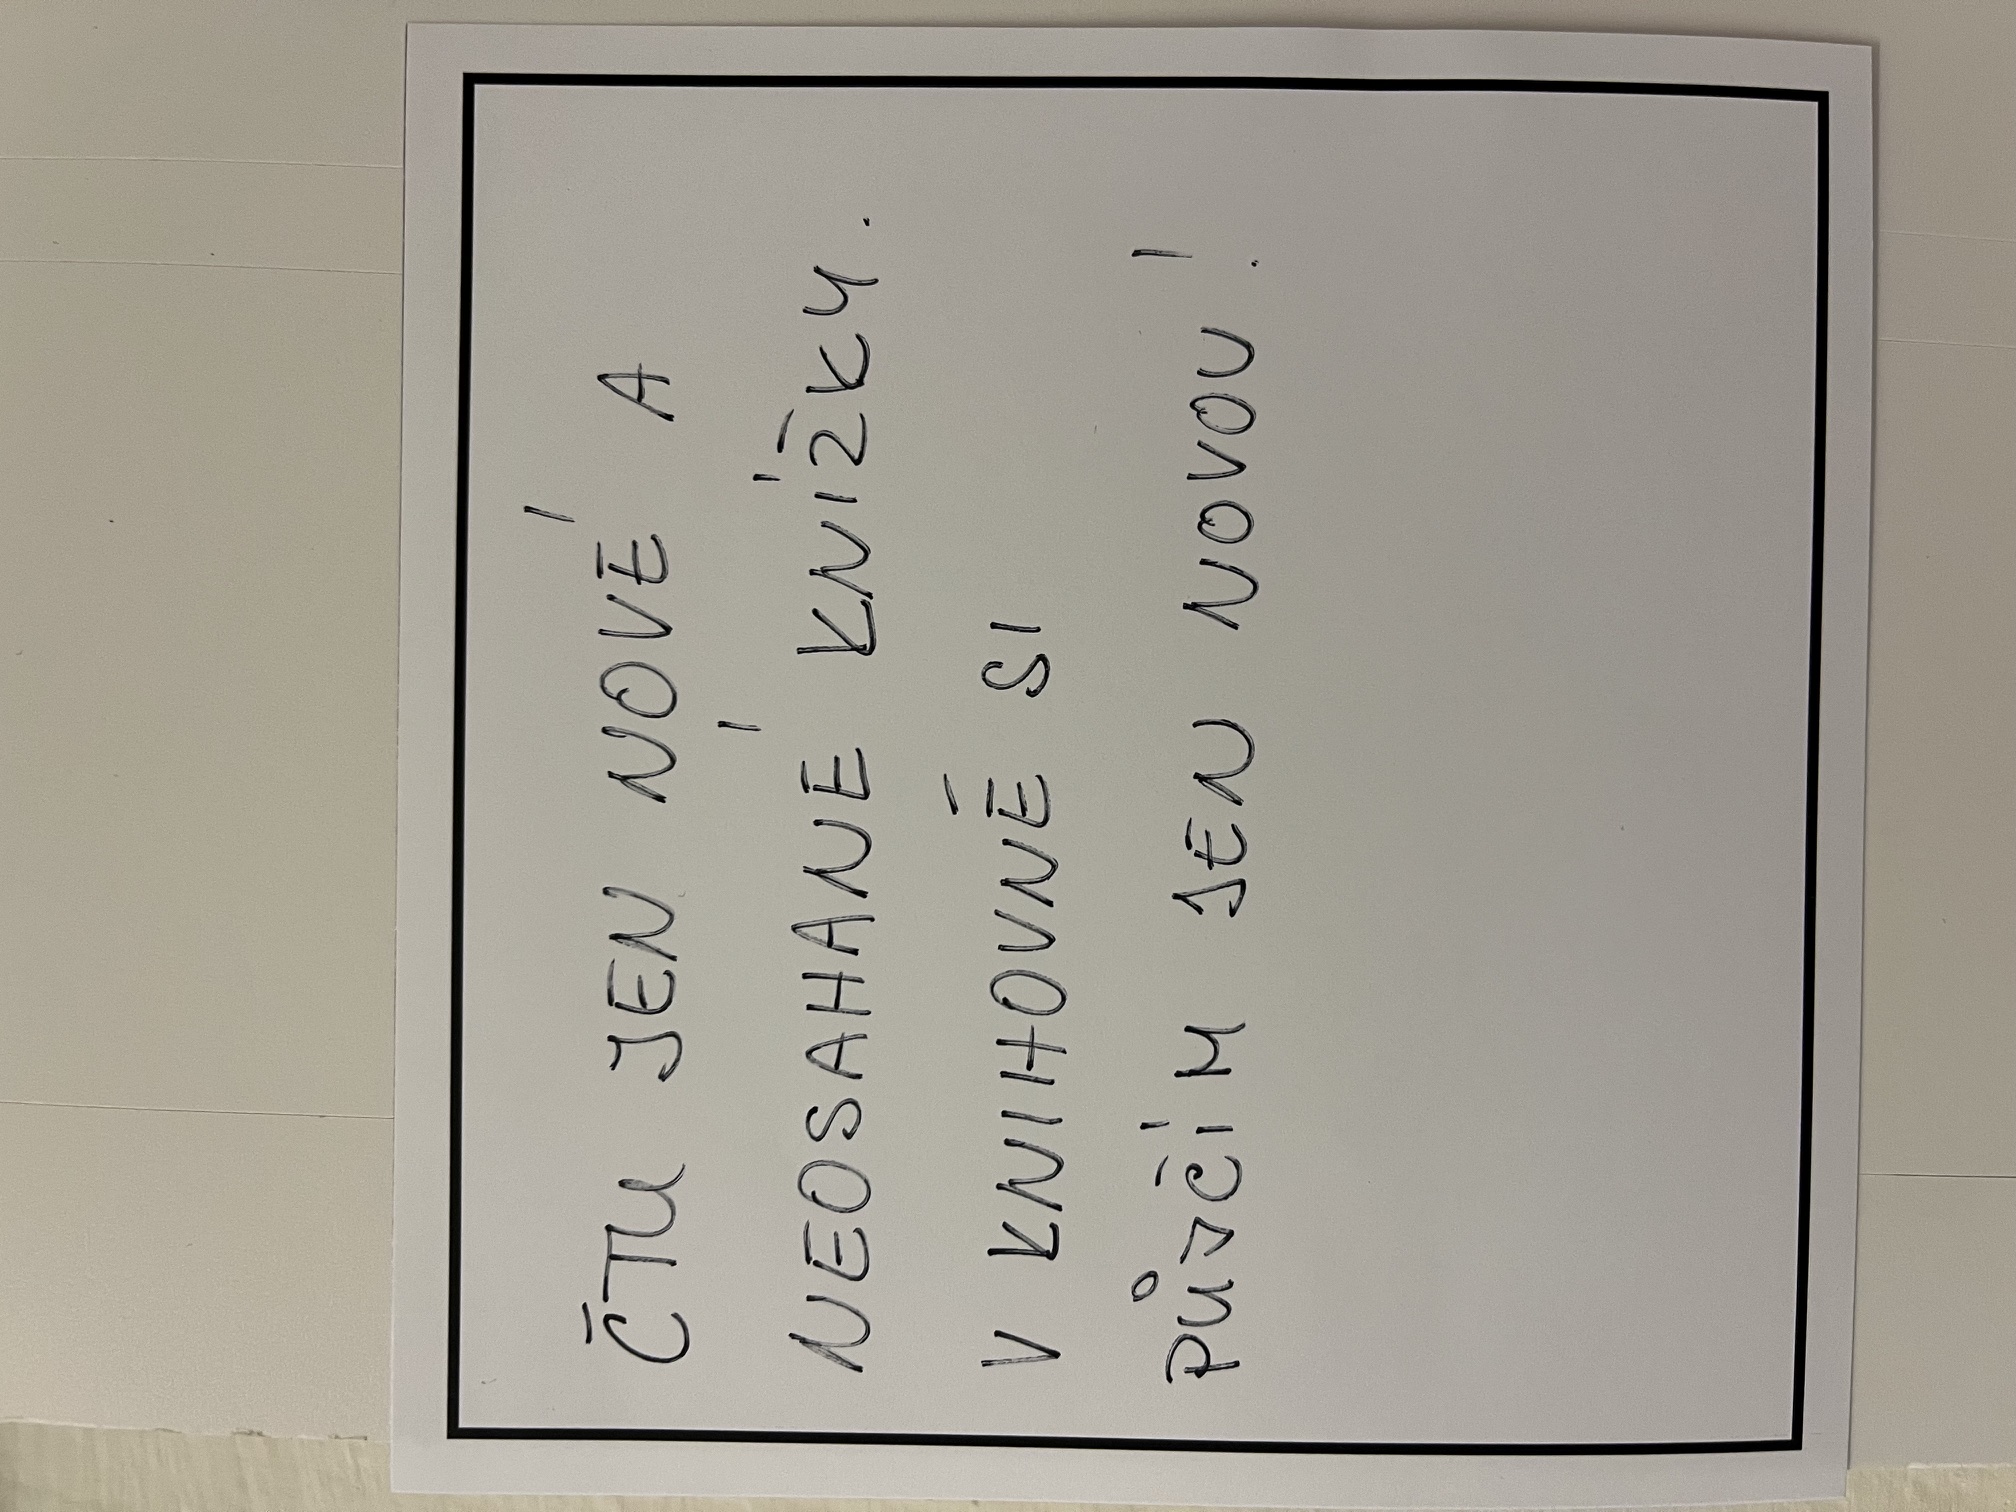 ČTU JEN NOVÉ A
NEOSAHANÉ KNÍŽKY.
V KNIHOVNĚ SI
PŮJČÍM JEN NOVOU!